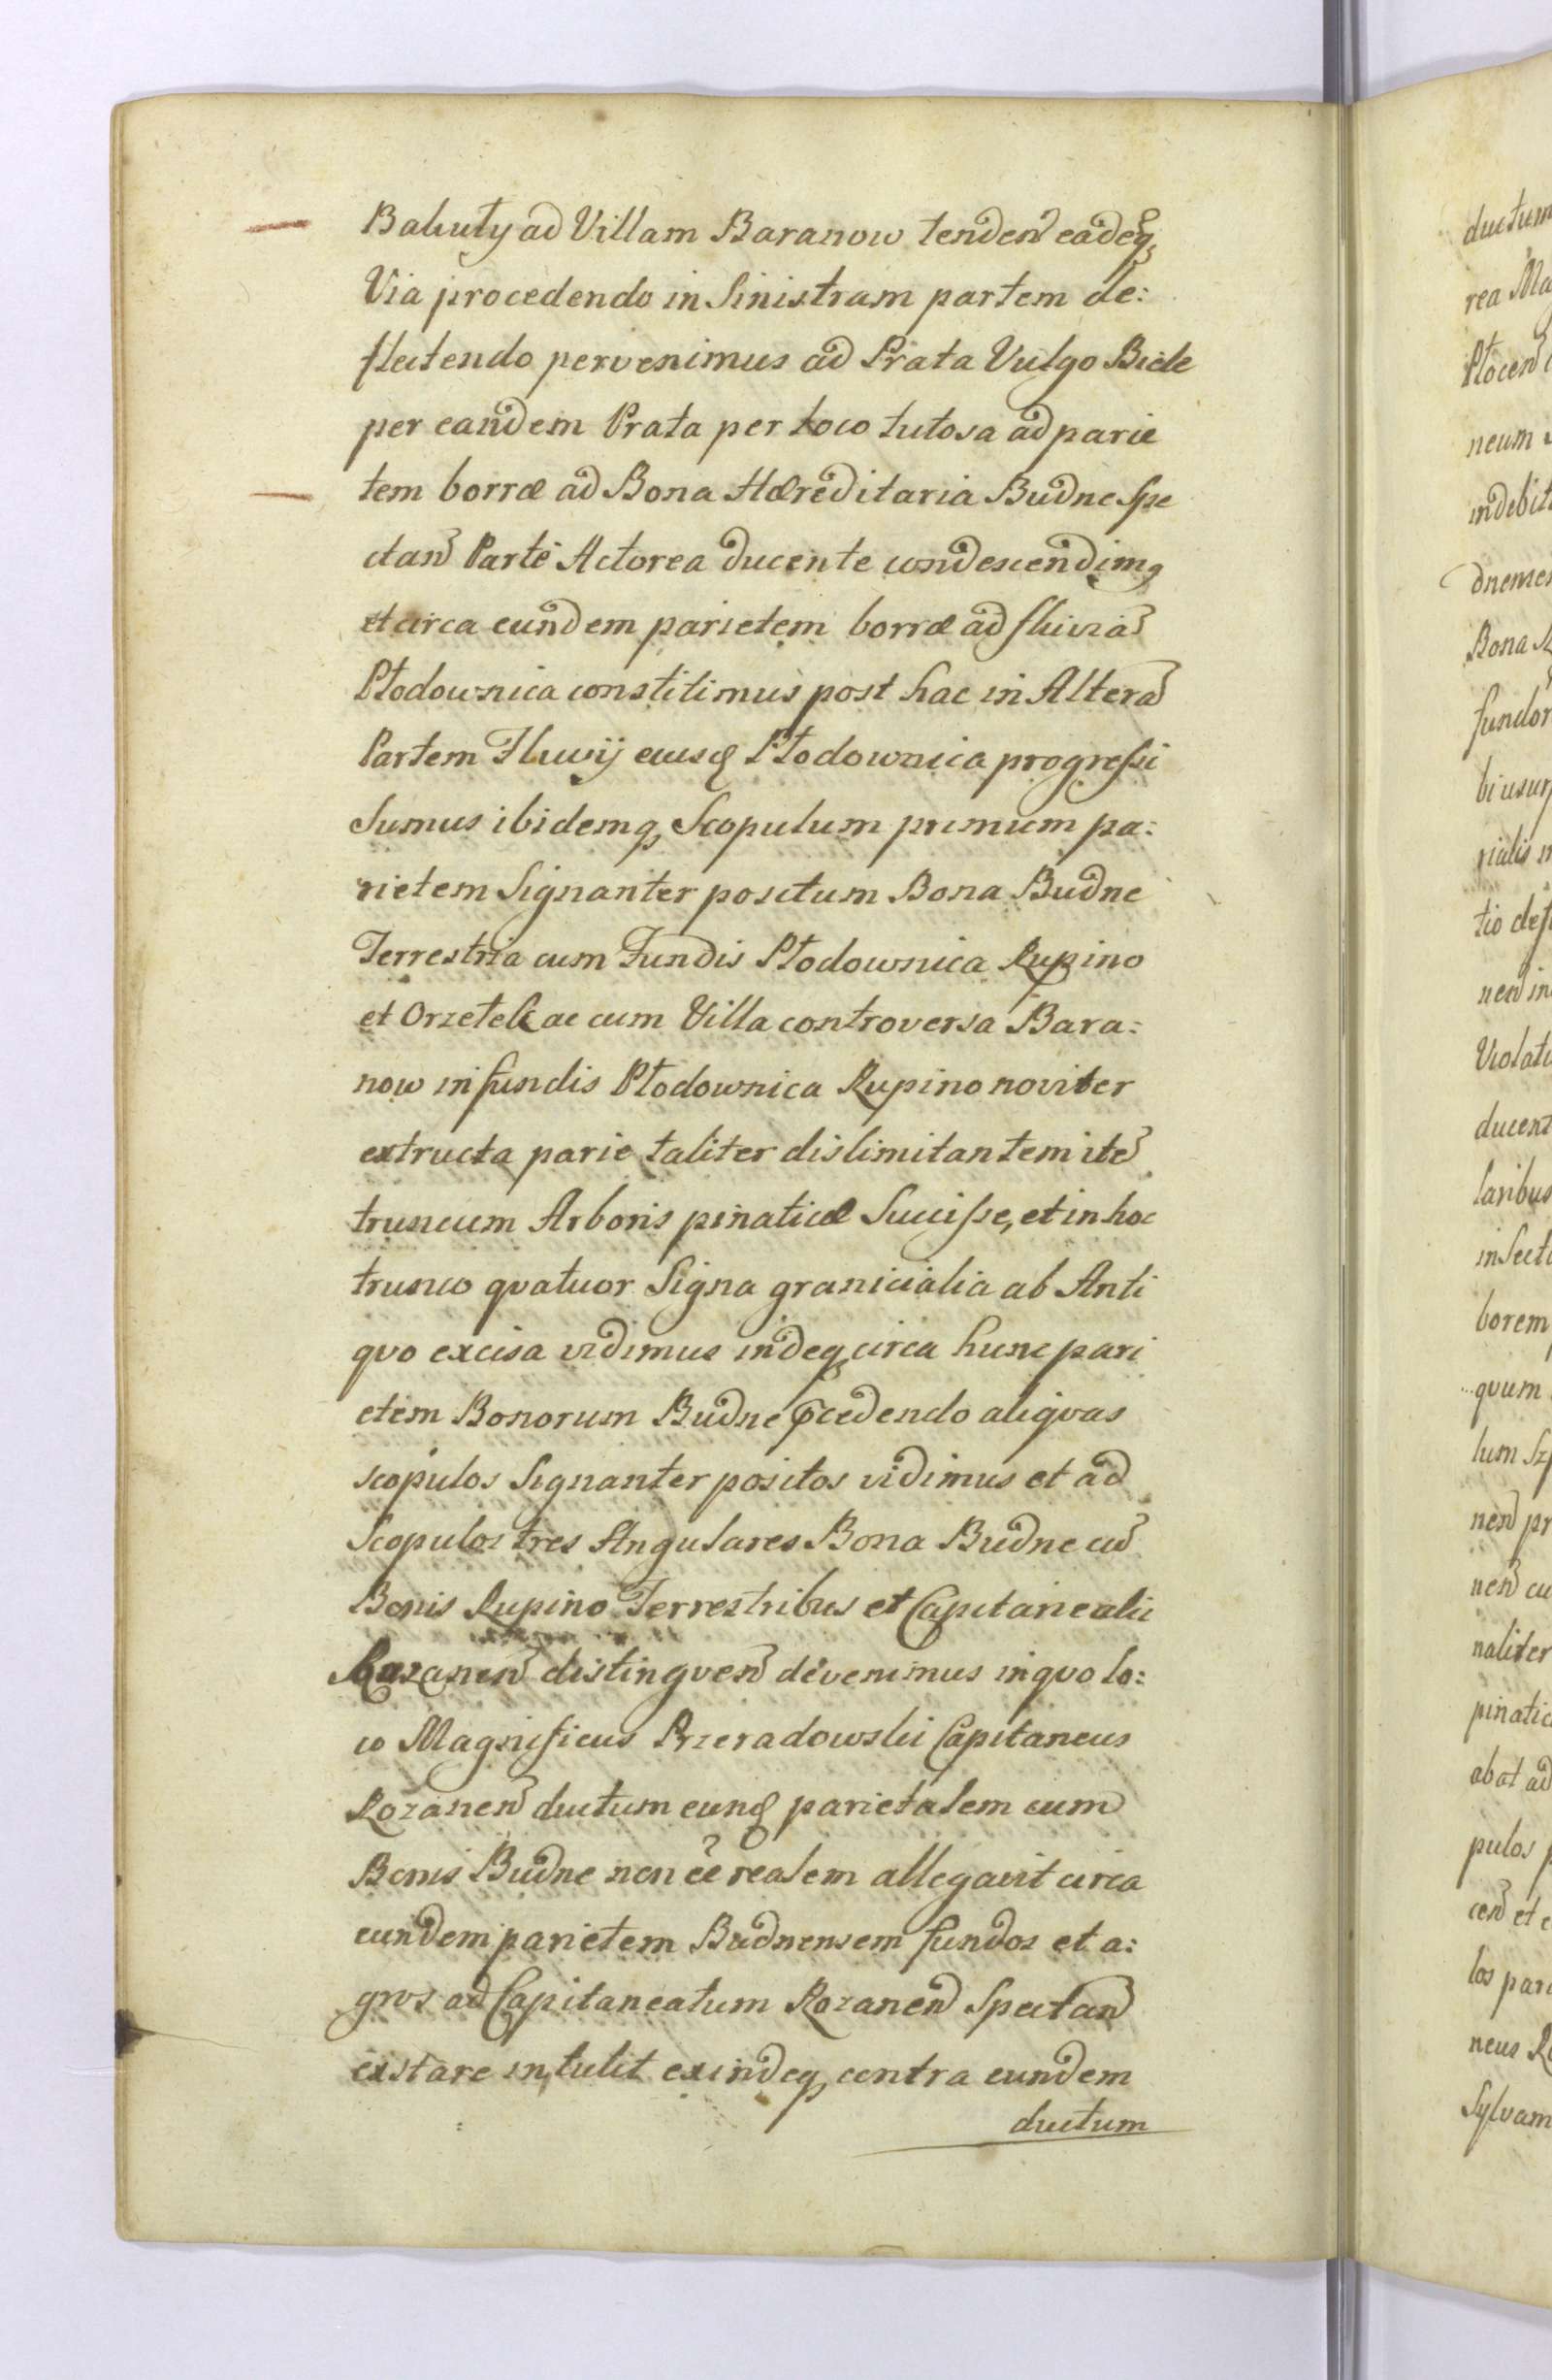 Bakuły ad Villam Baranow tenden̄ eadeq́;
Via procedendo in Sinistram partem de:
flectendo pervenimus ad Prata Vulgo Biele
per eandem Prata per loco lutosa ad parie
tem borræ ad Bona Hæreditaria Budne spe
ctan̄ Parte Actorea ducente condescendimq
et circa eundem parietem borræ ad fluviū
Płodownica constitimus post hac in Alterā
Partem Fluvij eiusđ Płodownica progressi
Sumus ibidemq; Scopulum primum pa:
rietem Signanter positum Bona Budne
Terrestria cum Fundis Płodownica Rupino
et Orzełek ac cum Villa controversa Bara:
now in fundis Płodownica Rupino noviter
extructa parie taliter dislimitantem itē
truncum Arboris pinaticæ Succisse, et in hoc
trunco qvatuor Signa granicialia ab Anti
qvo excisa vidimus indeq; circa hunc pari
etem Bonorum Budne ꝓcedendo aliqvas
scopulos Signanter positos vidimus et ad
Scopulos tres Angulares Bona Budne cū
Bonis Rupino Terrestribus et Capitanealii
Rozanen̄ distingven̄ devenimus in qvo lo:
co Magnificus Przeradowski Capitaneus
Rozanen̄ ductum eunđ parietalem cum
Bonis Budne non eē realem allegavit circa
eundem parietem Budnensem fundos et a:
gros ad Capitaneatum Rozanen̄ Spectan̄
exstare intulit exindeq; contra eundem
ductum
ductum
rea Ma
Płocen̄
neum
indebit
dnense
Bona
fundor
bi usur
rialis
tio def
nen̄ in
Violat
ducent
laribus
in Secti
borem
qvum
lum Sz
nen̄ pr
nen̄ cu
naliter
pinatic
abat ad
pulos p
cen̄ et
los pari
neus Ro
Sylvam